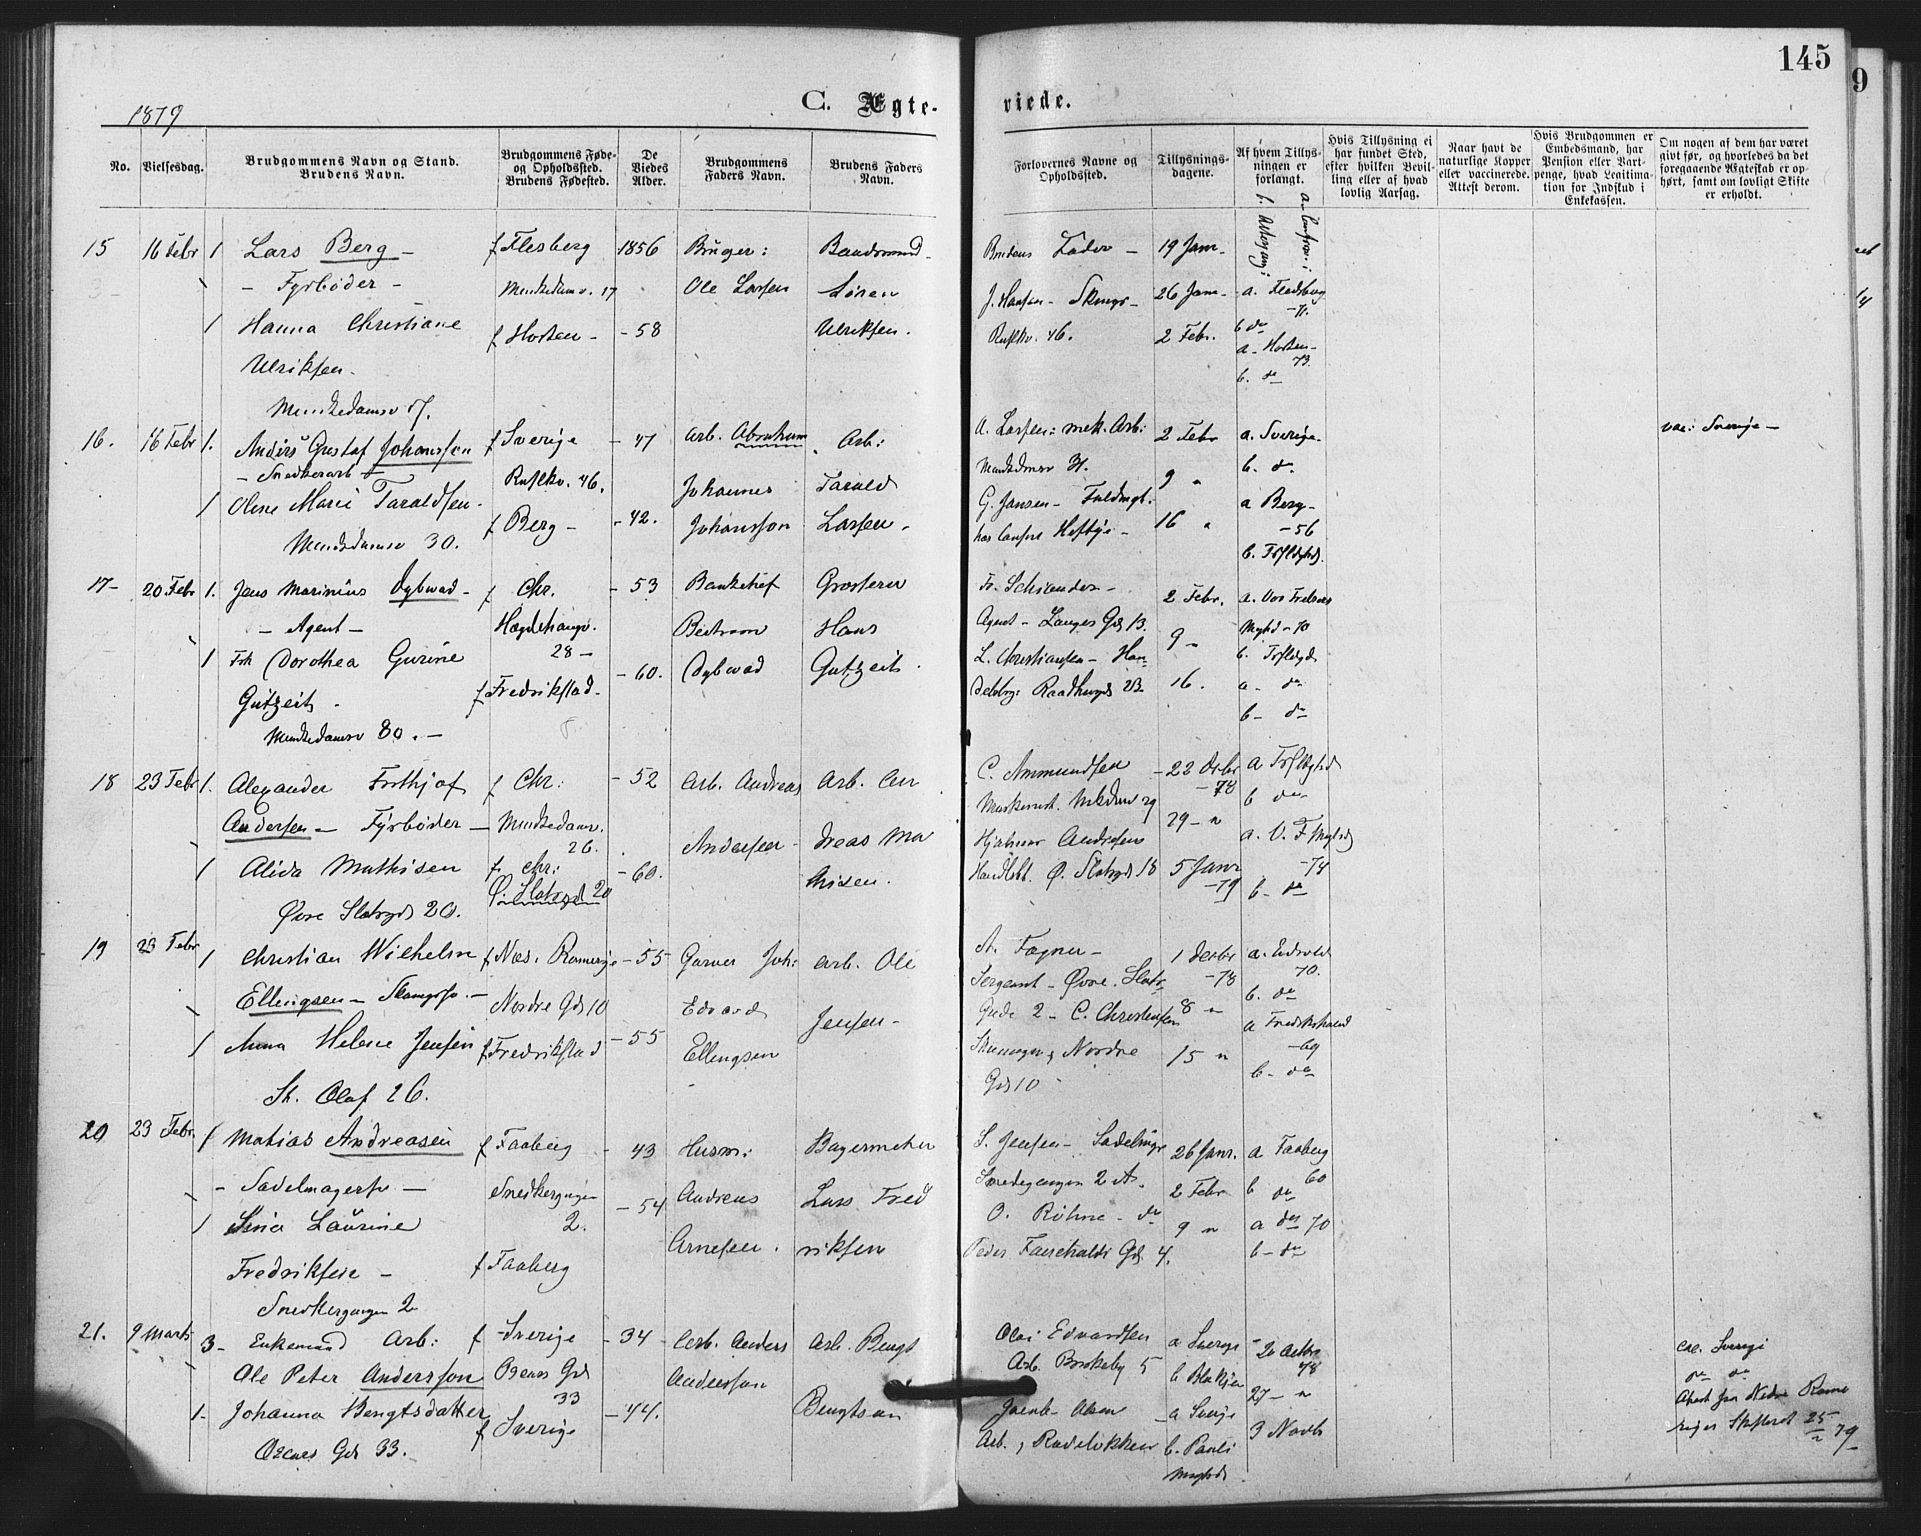 145
9
1879
C. Ægte-
viede.
No.
Vielsesdag.
Brudgommens Navn og Stand.
Brudens Navn.
Brudgommens Føde-
og Opholdssted.
Brudens Fødested.
De
Viedes
Alder.
Brudgommens
Faders Navn.
Brudens Faders
Navn.
Forlovernes Navne og
Opholdssted.
Tillysnings-
dagene.
Af hvem Tillys-
ningen er
forlangt.
Hvis Tillysning ei
har fundet Sted,
efter hvilken Bevil-
ling eller af hvad
lovlig Aarsag.
Naar havt de
naturlige Kopper
eller vaccinerede.
Attest derom.
Hvis Brudgommen er
Embedsmand, har
Pension eller Vart-
penge, hvad Legitima-
tion for Indskud i
Enkekassen.
Om nogen af dem har været
givt før, og hvorledes da det
foregaaende Ægteskab er op-
hørt, samt om lovligt Skifte
er erholdt.
15
16 Febr
1
Lars Berg -
- Fyrbøder -
1
Hanna Christiane
Ulriksen.
Munkedamsv 17.
f Flesberg
Munkedamsv. 17
f Horten -
1856
- 58
Bruger:
Ole Larsen
Baadsmand
Søren
Ulriksen.
Brudens Fader -
J. Hansen - Skomgr -
Ruslkv. 46.
19 Janr
26 Janr
2 Febr.
a. Flesberg
-71.
b. do
a. Horten -
73.
b. do
16.
16 Febr
1.
Anders Gustaf Johansson
- Snedkerarb -
1
Oline Marie Taraldsen
Munkedamsv 30.
f Sverige
Ruslkv. 46.
f Berg -
- 47
- 42.
Arb. Abraham
Johannes
Johansson
Arb:
Tarald
Larsen.
A. Larsen: mek. Arb:
Munkedamsv 31.
G. Jansen - Fuldmgt.
2 Febr
9 "
16 "
a. Sverige
b. do
a Berg -
- 56
vac: Sverige -
17 -
20 Febr
1.
Jens Marinius Dybwad -
- Agent -
1
Frk Dorothea Gurine
Gutzeit
Munkedamsv 80. -
f Chr.
Hægdehaugv.
28 -
f Fredrikstad -
- 53
- 60.
Bankchef
Bertram
Dybwad
Grosserer
Hans
Gutzeit
Fr. Schiander -
Agent - Langes Gd 13.
L. Christiansen - Han-
delsbg: Raadhusgd 23.
2 Febr.
9 "
16.
a. Vor Frelsers
Mghd - 70
a - do
b - do
18
23 Febr
1.
Alexander Frithjof
Andersen - Fyrbøder -
1
Alida Mathisen
Øvre Slotsgd 20.
f Chr:
Munkedamv.
26.
f. Chr:
Ø. Slotsgd 20
- 52
- 60.
Arb. Andreas
Andersen
Arb. An
dreas Ma
thisen.
C. Ammundsen
Hjalmar Andersen
Ø. Slotsgd 18
- 22 Decbr
- 78
29 - "
5 Janr
- 79
b do
- 74
b - do
19
23 Febr
1
Christian Wilhelm
Ellingsen -
1
Anna Helene Jensen
St. Olaf 26.
f Næs. Romerige
Nordre Gd 10
f Fredrikstad
- 55
- 55
Garver Joh:
Edvard
Ellingsen
Arb. Ole
Jensen -
A. Fagner -
Sergeant - Øvre Slots
Gade 2 - C. Christensen
Nordre
Gd 10
1 Decbr
- 78
8 "
15 "
70.
b. do
- 69
b - do
20
23 Febr.
1
Matias Andreasen
- Sadelmagersv -
1
Sina Laurine
Fredriksen -
Snedkergangen 2
f Faaberg
Snedkergangen
2.
f Faaberg
- 43
- 54
Husm:
Andreas
Arnesen.
Lars Fred
riksen
S. Jensen - Sadelmgr
2 A.
26 Janr.
2 Febr
9 "
a Faaberg
60
b do
a do 70
b - do
21.
9 Marts
3 -
Enkemand Arb:
Ole Peter Andersson
1 -
Johanna Bengtsdatter
Oscars Gd 33.
f Sverige
Oscars Gd
33
f Sverige
- 34
- 44.
Arb. Anders
Andersson
Arb. Bengt
Bengtson
Olai Edvardsen
Arb. Briskeby 5
Jacob Olsen
Arb., Rodeløkken
a Sverige
a Sverige
b. Pauli
Mghd
27 - "
3 Novb
vac. Sverige
do do